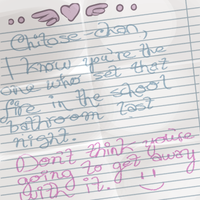 Chitose-chan,
I know you're the
one who set that
fire in the school
bathroom last
night.
Don't think you're
going to get away
with it.